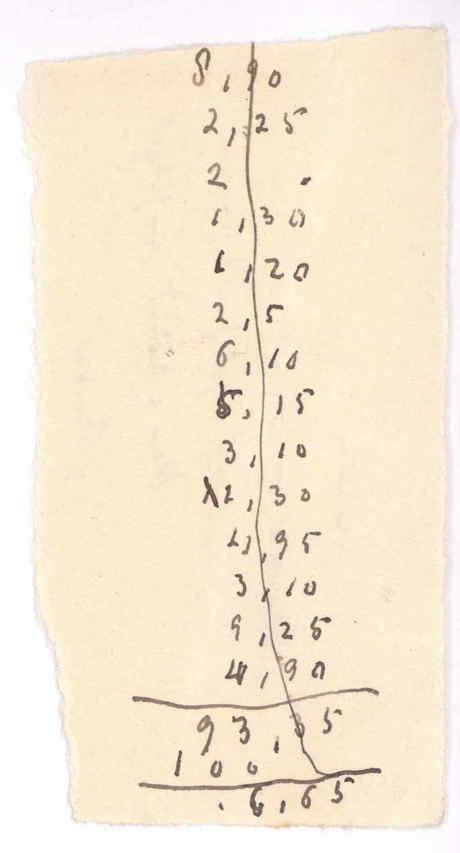 8,90
2,25
2 .
1,30
1,20
2,5
6,10
5,15
3,10
12,30
4,95
3,10
9,25
4,90
93,35
100
. 6,65